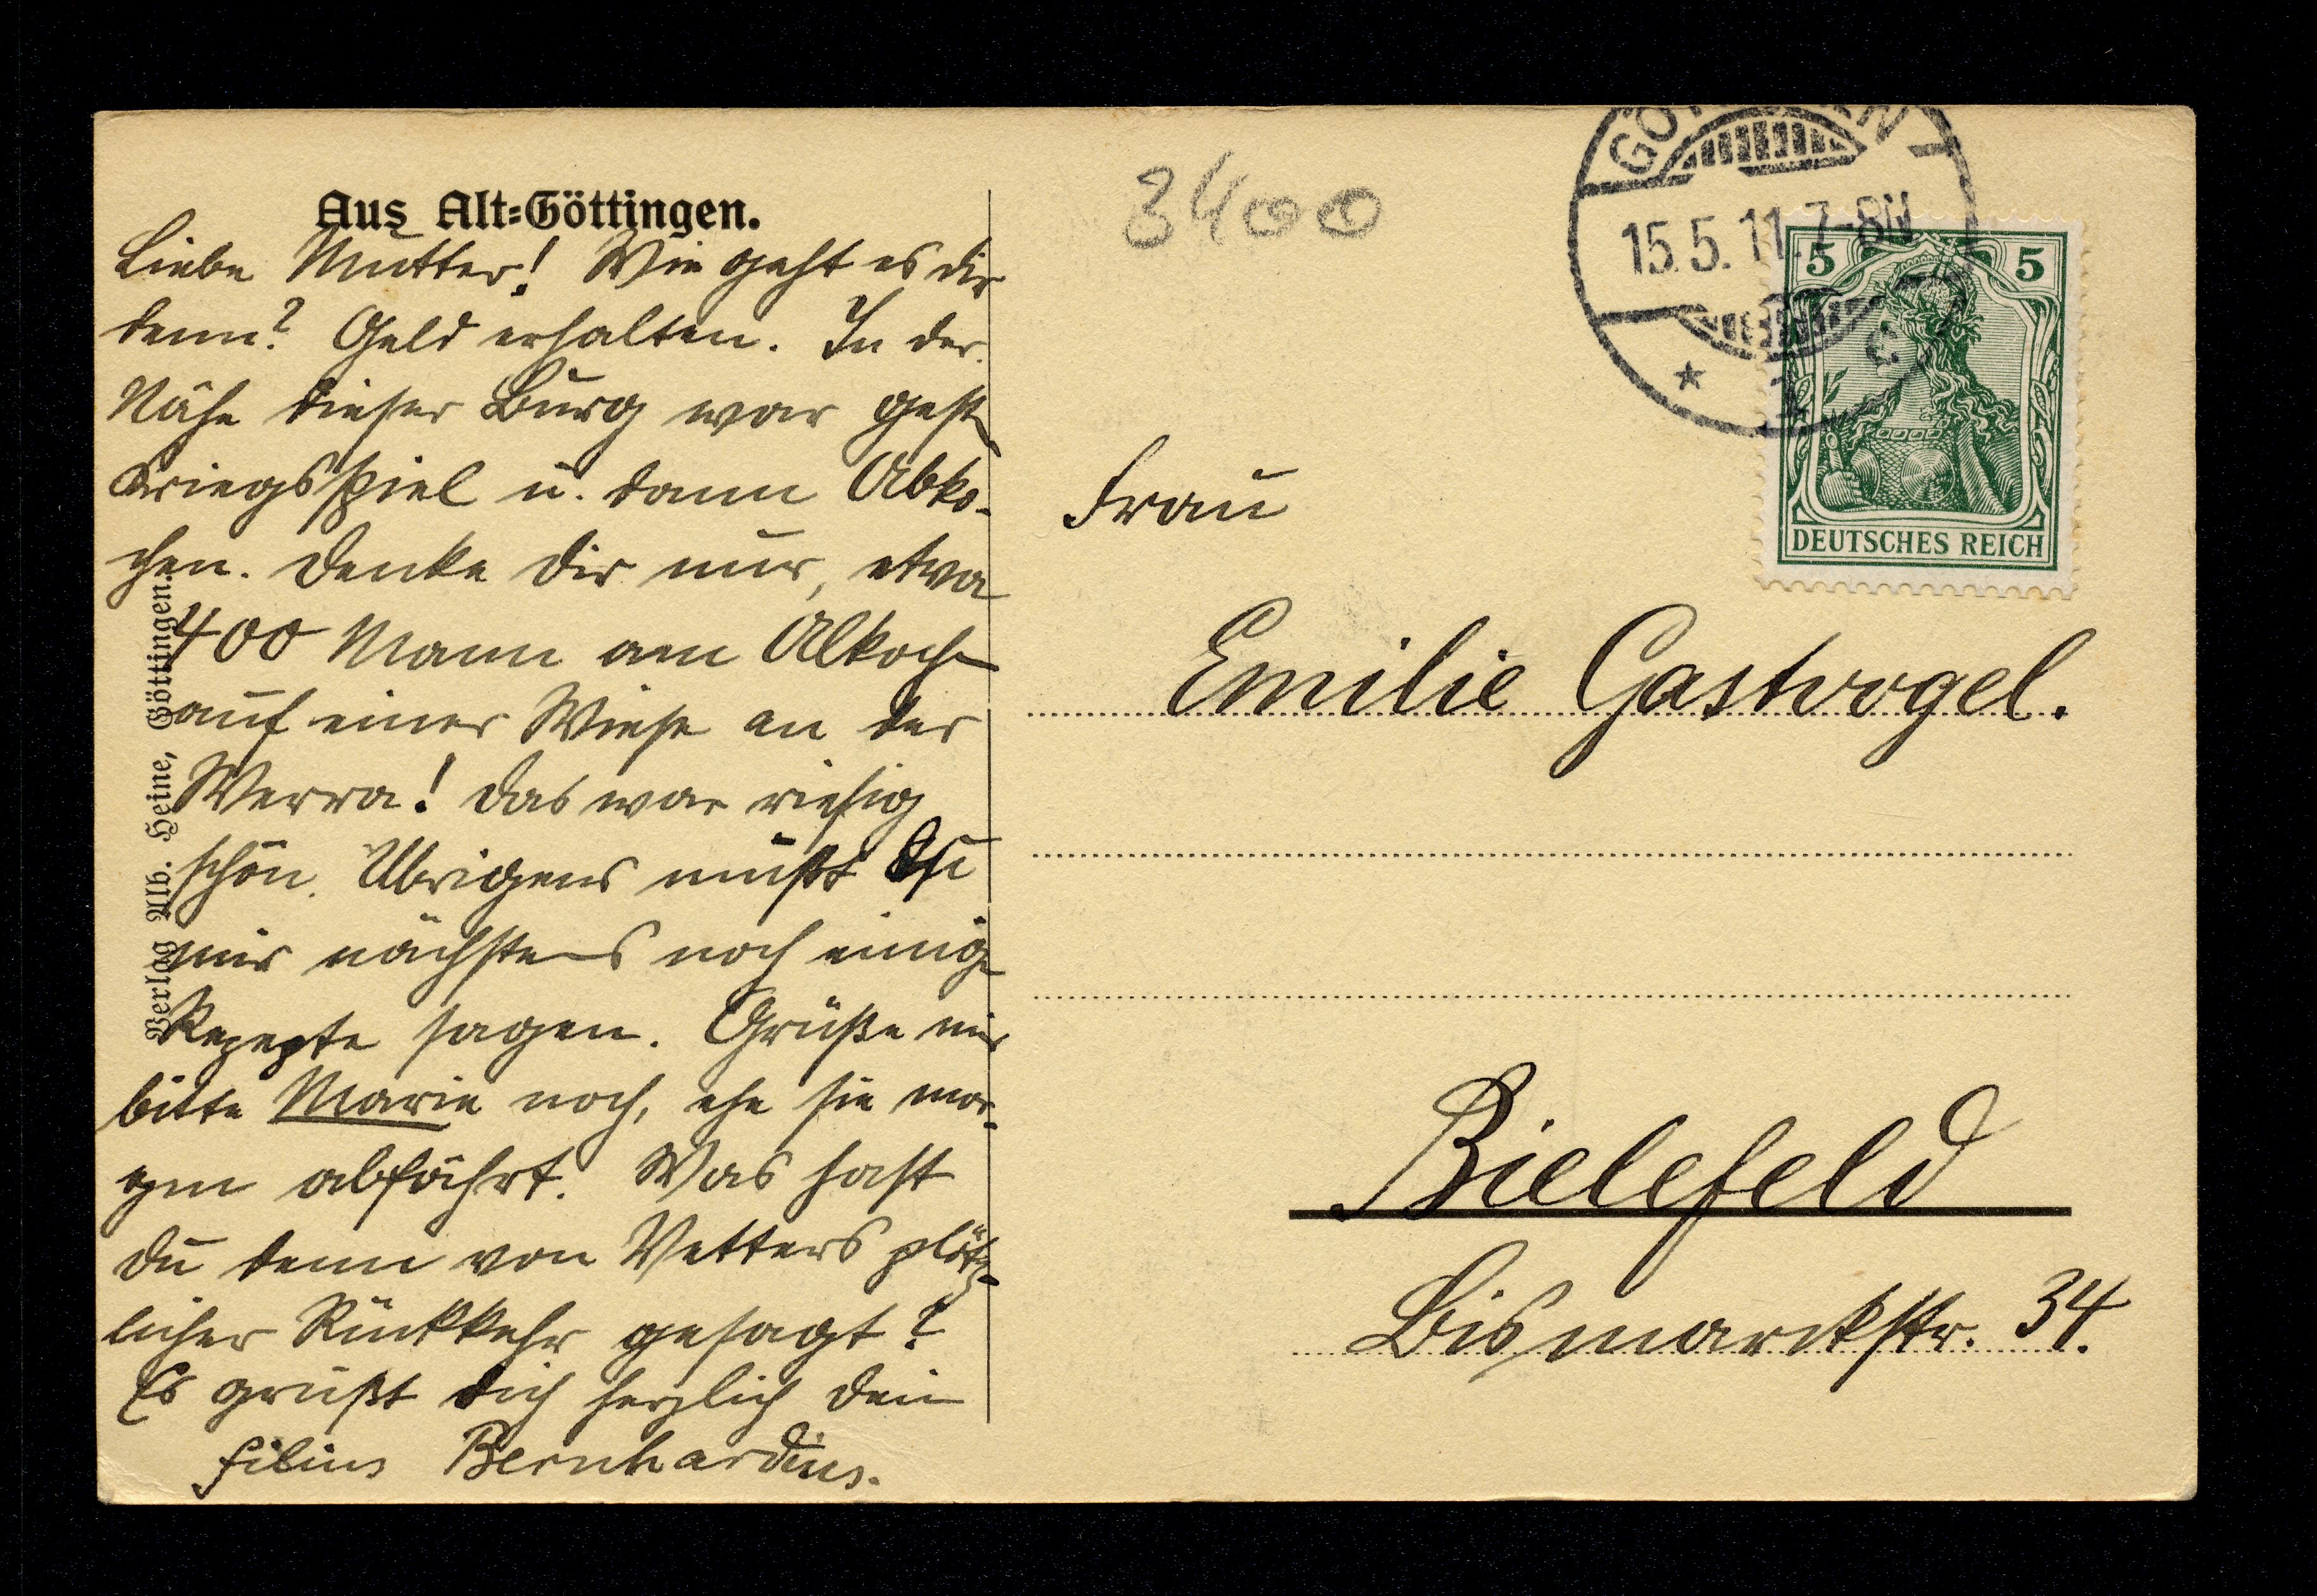 Aus Alt-Göttingen.
Liebe Mutter! Wie geht es dir
denn? Geld erhalten. In der
Nähe dieser Burg war gest.
Kriegsspiel u. dann Abko-
chen. Denke dir nur, etwa
400 Mann am Abkoch
auf einer Wiese an der
Werra! Das war riesig
schön. Übrigens mußt Du
mir nächstens noch einige
Rezepte sagen. Grüße mir
bitte Marie noch, ehe sie mor-
gen abfährt. Was hast
du denn von Vetters plötz-
licher Rückkehr gesagt?
Es grüßt dich herzlich dein
filius Bernhardius.
Verlag Alb. Heine, Göttingen.
3400
15.5.11. 7-8N
* 1 c
5 5
DEUTSCHES REICH
Frau
Emilie Gastvogel.
Bielefeld
Bismarckstr. 34.